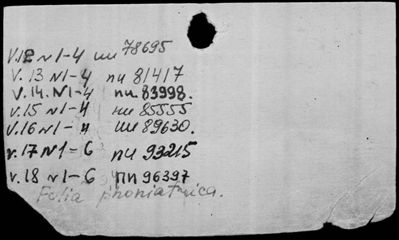 V.12 N1-4 пи 78695
V. 13 N1-4 пи 81417
V. 14. N1-4 пи. 83998.
V. 15 N1-4 пи 85555
V. 16 N1-4 пи 89630.
V. 17 N1-6 пи 93215
V. 18 N1-6 пп 96397
Folia phoniatrica.